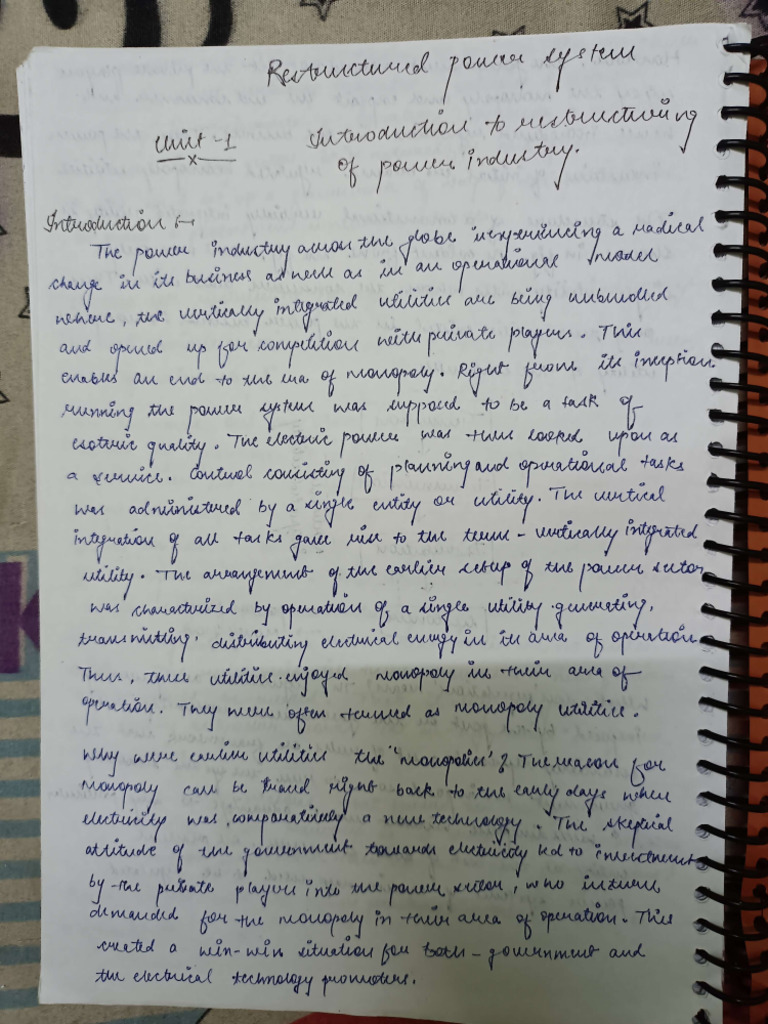 Restructured power system
Unit-1 Introduction to restructuring
x of power industry.
Introduction :-
The power industry across the globe is experiencing a radical
change in its business as well as in an operational model
where, the vertically integrated utilities are being unbundled
and opened up for competition with private players. This
enables an end to the era of monopoly. Right from its inception
running the power system was supposed to be a task of
esoteric quality. The electric power was then looked upon as
a service. Control consisting of planning and operational tasks
was administered by a single entity or utility. The vertical
integration of all tasks gave rise to the term - vertically integrated
utility. The arrangement of the earlier setup of the power sector
was characterized by operation of a single utility generating,
transmitting, distributing electrical energy in its area of operation
Thus, these utilities enjoyed monopoly in their area of
operation. They were often termed as monopoly utilities.
Why were earlier utilities the 'monopolies'? The reason for
monopoly can be traced right back to the early days when
electricity was comparatively a new technology. The skeptical
attitude of the government towards electricity led to investment
by the private players into the power sector, who in turn
demanded for the monopoly in their area of operation. This
created a win-win situation for both - government and
the electrical technology promoters.